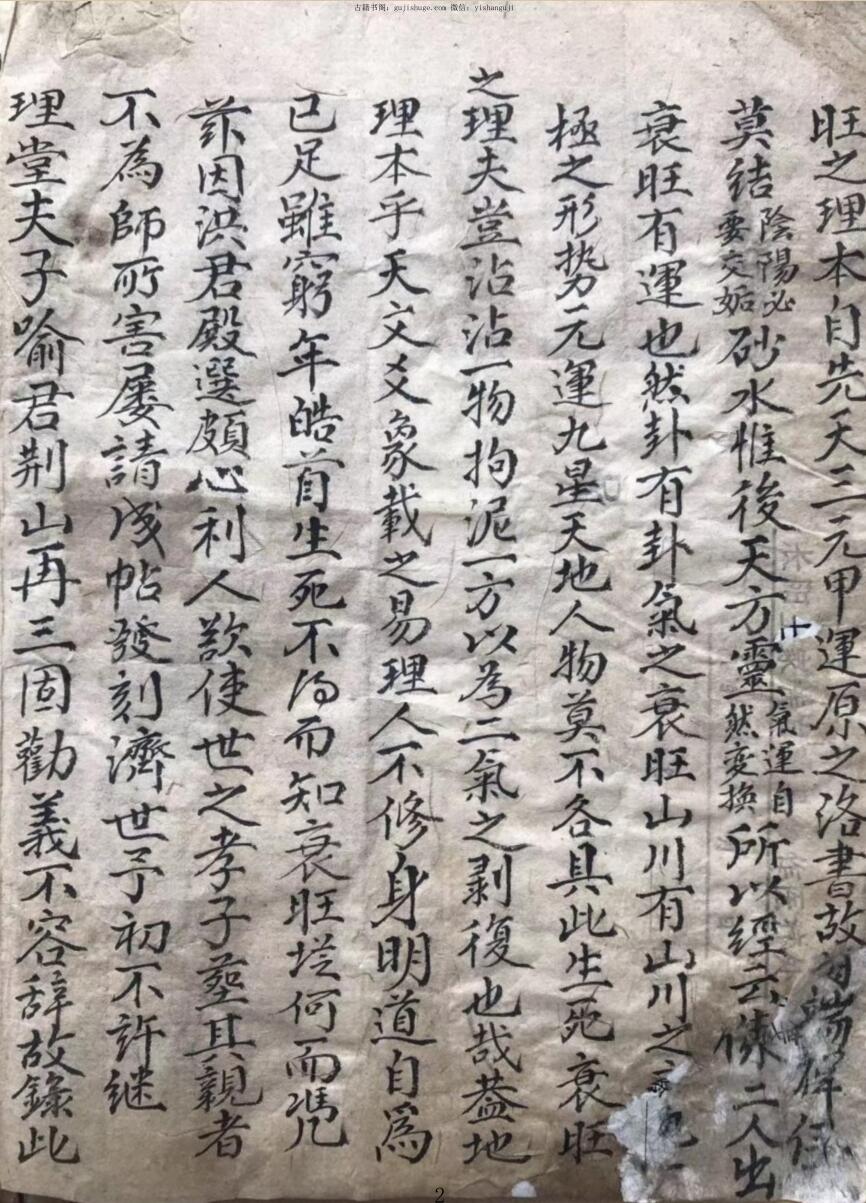 古籍书阁：gujishuge.com 微信：yishanguji
旺之理本自先天三元甲運原之洛書故
莫結陰陽必要交媾砂水惟後天方靈氣運自然变換所以經云二人出
衰旺有運也然卦有卦氣之衰旺山川有山川之
極之形势元運九星天地人物莫不各具此生死衰旺
之理夫豈沾沾一物拘泥一方以為二氣之剥復也哉蓋地
理本乎天文爻象載之易理人不修身明道自為
已足雖窮年皓首生死不的而知衰旺從何而凭
兹因洪君殿選頗心利人欲使世之孝子塟其親者
不為師所害屡請成帖發刻濟世予初不許継
理堂夫子喻君荆山再三固勸義不容辞故錄此
2